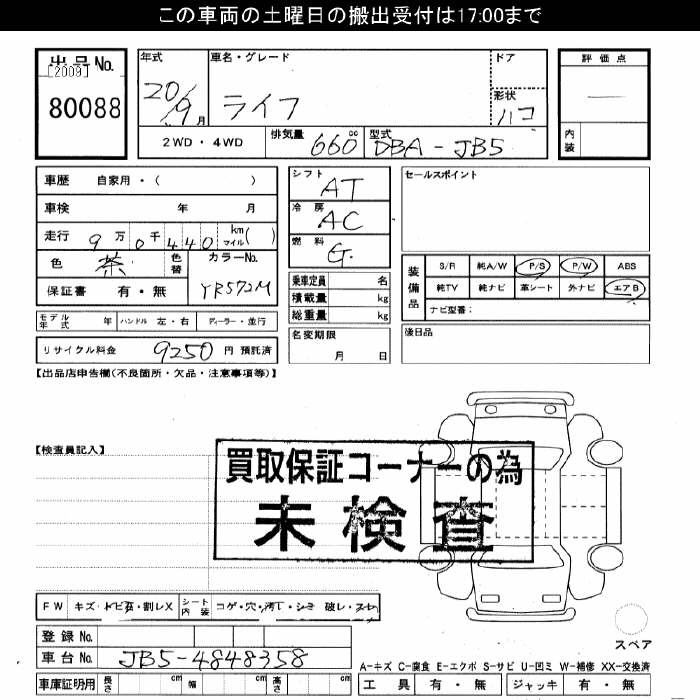 この車両の土曜日の搬出受付は17:00まで
出品No.
[2009]
80088
年式 車名・グレード ドア
20/9月 ライフ 形状 ハコ
2WD・4WD 排気量 660cc 型式 DBA-JB5
評価点
内装
車歴 自家用・( )
車検 年 月
走行 9万0千440 km マイル( )
色 茶 色替 カラーNo.
保証書 有・無 YR572M
モデル年式 年 ハンドル 左・右 ディーラー・並行
リサイクル料金 9250円 預託済
シフト AT
冷房 AC
燃料 G.
乗車定員 名
積載量 kg
総重量 kg
名変期限
月 日
セールスポイント
装備品
S/R 純A/W P/S P/W ABS
純TV 純ナビ 革シート 外ナビ エアB
ナビ型番:
後日品
【出品店申告欄(不良箇所・欠品・注意事項等)】
【検査員記入】
買取保証コーナーの為
未検査
FW キズ・トビ石・割レX シート内装 コゲ・穴・汚レ・シミ 破レ・スレ
登録No.
車台No. JB5-4848358
車庫証明用 長さ cm 幅 cm 高さ cm
スペア
A-キズ C-腐食 E-エクボ S-サビ U-凹ミ W-補修 XX-交換済
工具 有・無 ジャッキ 有・無